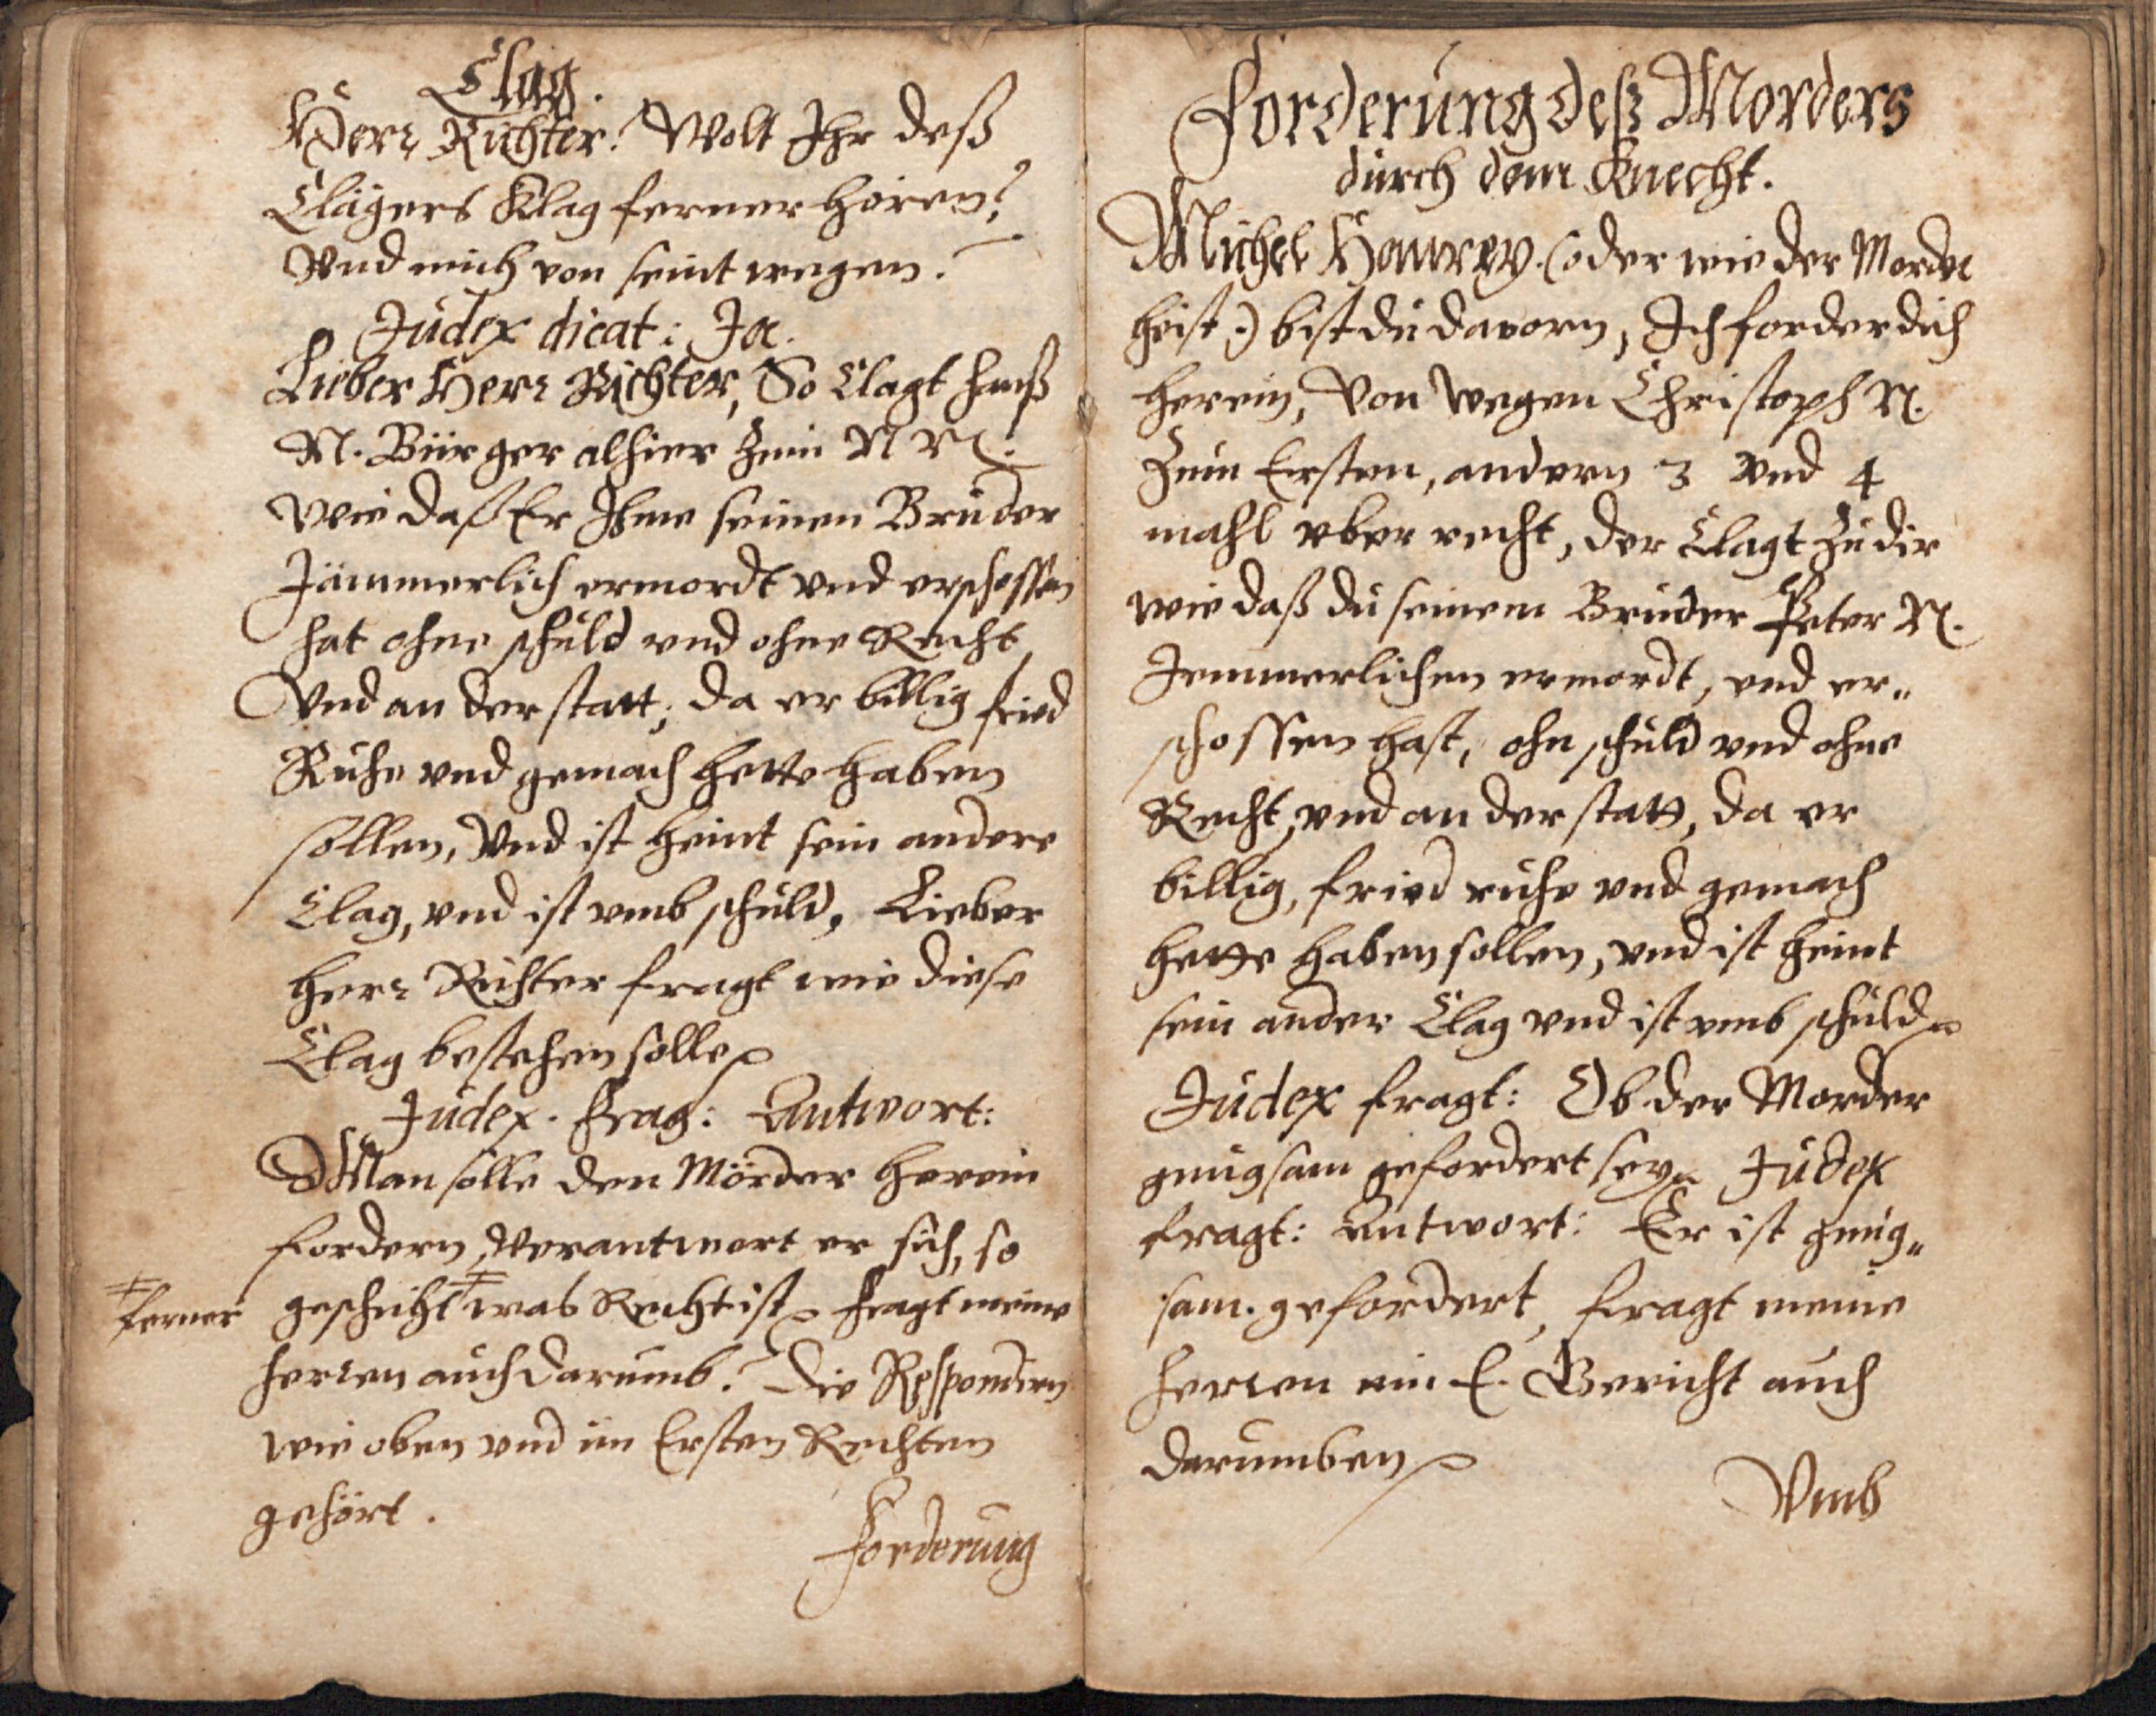 Clag.
Herr Richter! Wolt Ihr deß
Clägers Klag ferner hören?
Vnd mich von seint wegen.
Judex dicat: Ja.
Lieber Herr Richter, So Clagt Hanß
N. Bürger alhier zum N N.
wie daß Er Ihme seinen Bruder
Jämmerlich ermordt vnd erschossen
hat ohne schuld vnd ohne Recht,
Vnd an der statt, da er billig fried
Ruhe vnd gemach hette haben
sollen, Vnd ist heint sein andere
Clag, vnd ist vmb schuld, Lieber
Herr Richter fragt wie diese
Clag bestehen solle
Judex. Frag: Antwort:
Man solle den Mörder herein
fordern, Verantwort er sich, so
ferner geschicht was Recht ist, fragt meine
Herren auch darumb? Die Respondirn
wie oben vnd im Ersten Rechten
gehört.
Forderung
Forderung deß Morders
durch dem Knecht.
Michel Hawrey. (oder wie der Morder
heist.) bist du davorn, Ich forder dich
herein, Von wegen Christoph N.
Zum Ersten, andern 3 vnd 4
mahl vber recht, der Clagt zu dir
wie daß du seinem Bruder Peter N.
Jemmerlichen ermordt, vnd er„
schossen hast, ohn schuld vnd ohne
Recht, vnd an der statt, da er
billig, fried ruhe vnd gemach
hette haben sollen, vnd ist heint
sein ander Clag vnd ist vmb schuld
Judex fragt: Ob der Morder
gnugsam gefordert sey Judex
fragt: Antwort: Er ist gnug„
sam. gefordert, fragt meine
Herren ein E. Gericht auch
darumben
Vmb